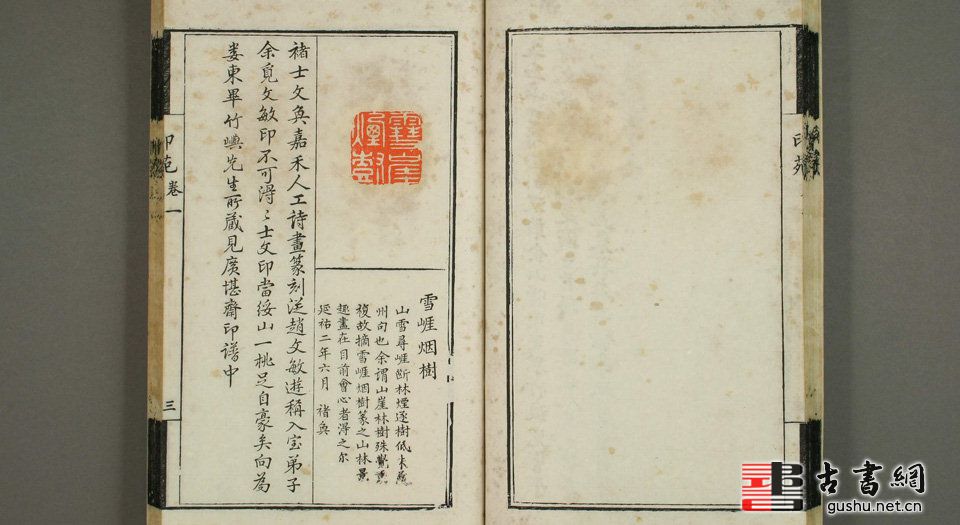 雪崕烟樹
雪崕烟樹
山雪尋崕斷林煙逐樹低
州句也余謂山崖林樹殊覺重
複故摘雪崕烟樹篆之山林景
趣盡在目前會心者淂之尔
延祐二年六月 褚奐
褚士文奐嘉禾人工詩畫篆刻從趙文敏遊稱入室弟子
余覓文敏印不可淂〻士文印當綏山一桃足自豪矣向為
婁東畢竹嶼先生所藏見廣堪齋印譜中
印苑 卷一
三
印苑
古書網
gushu.net.cn